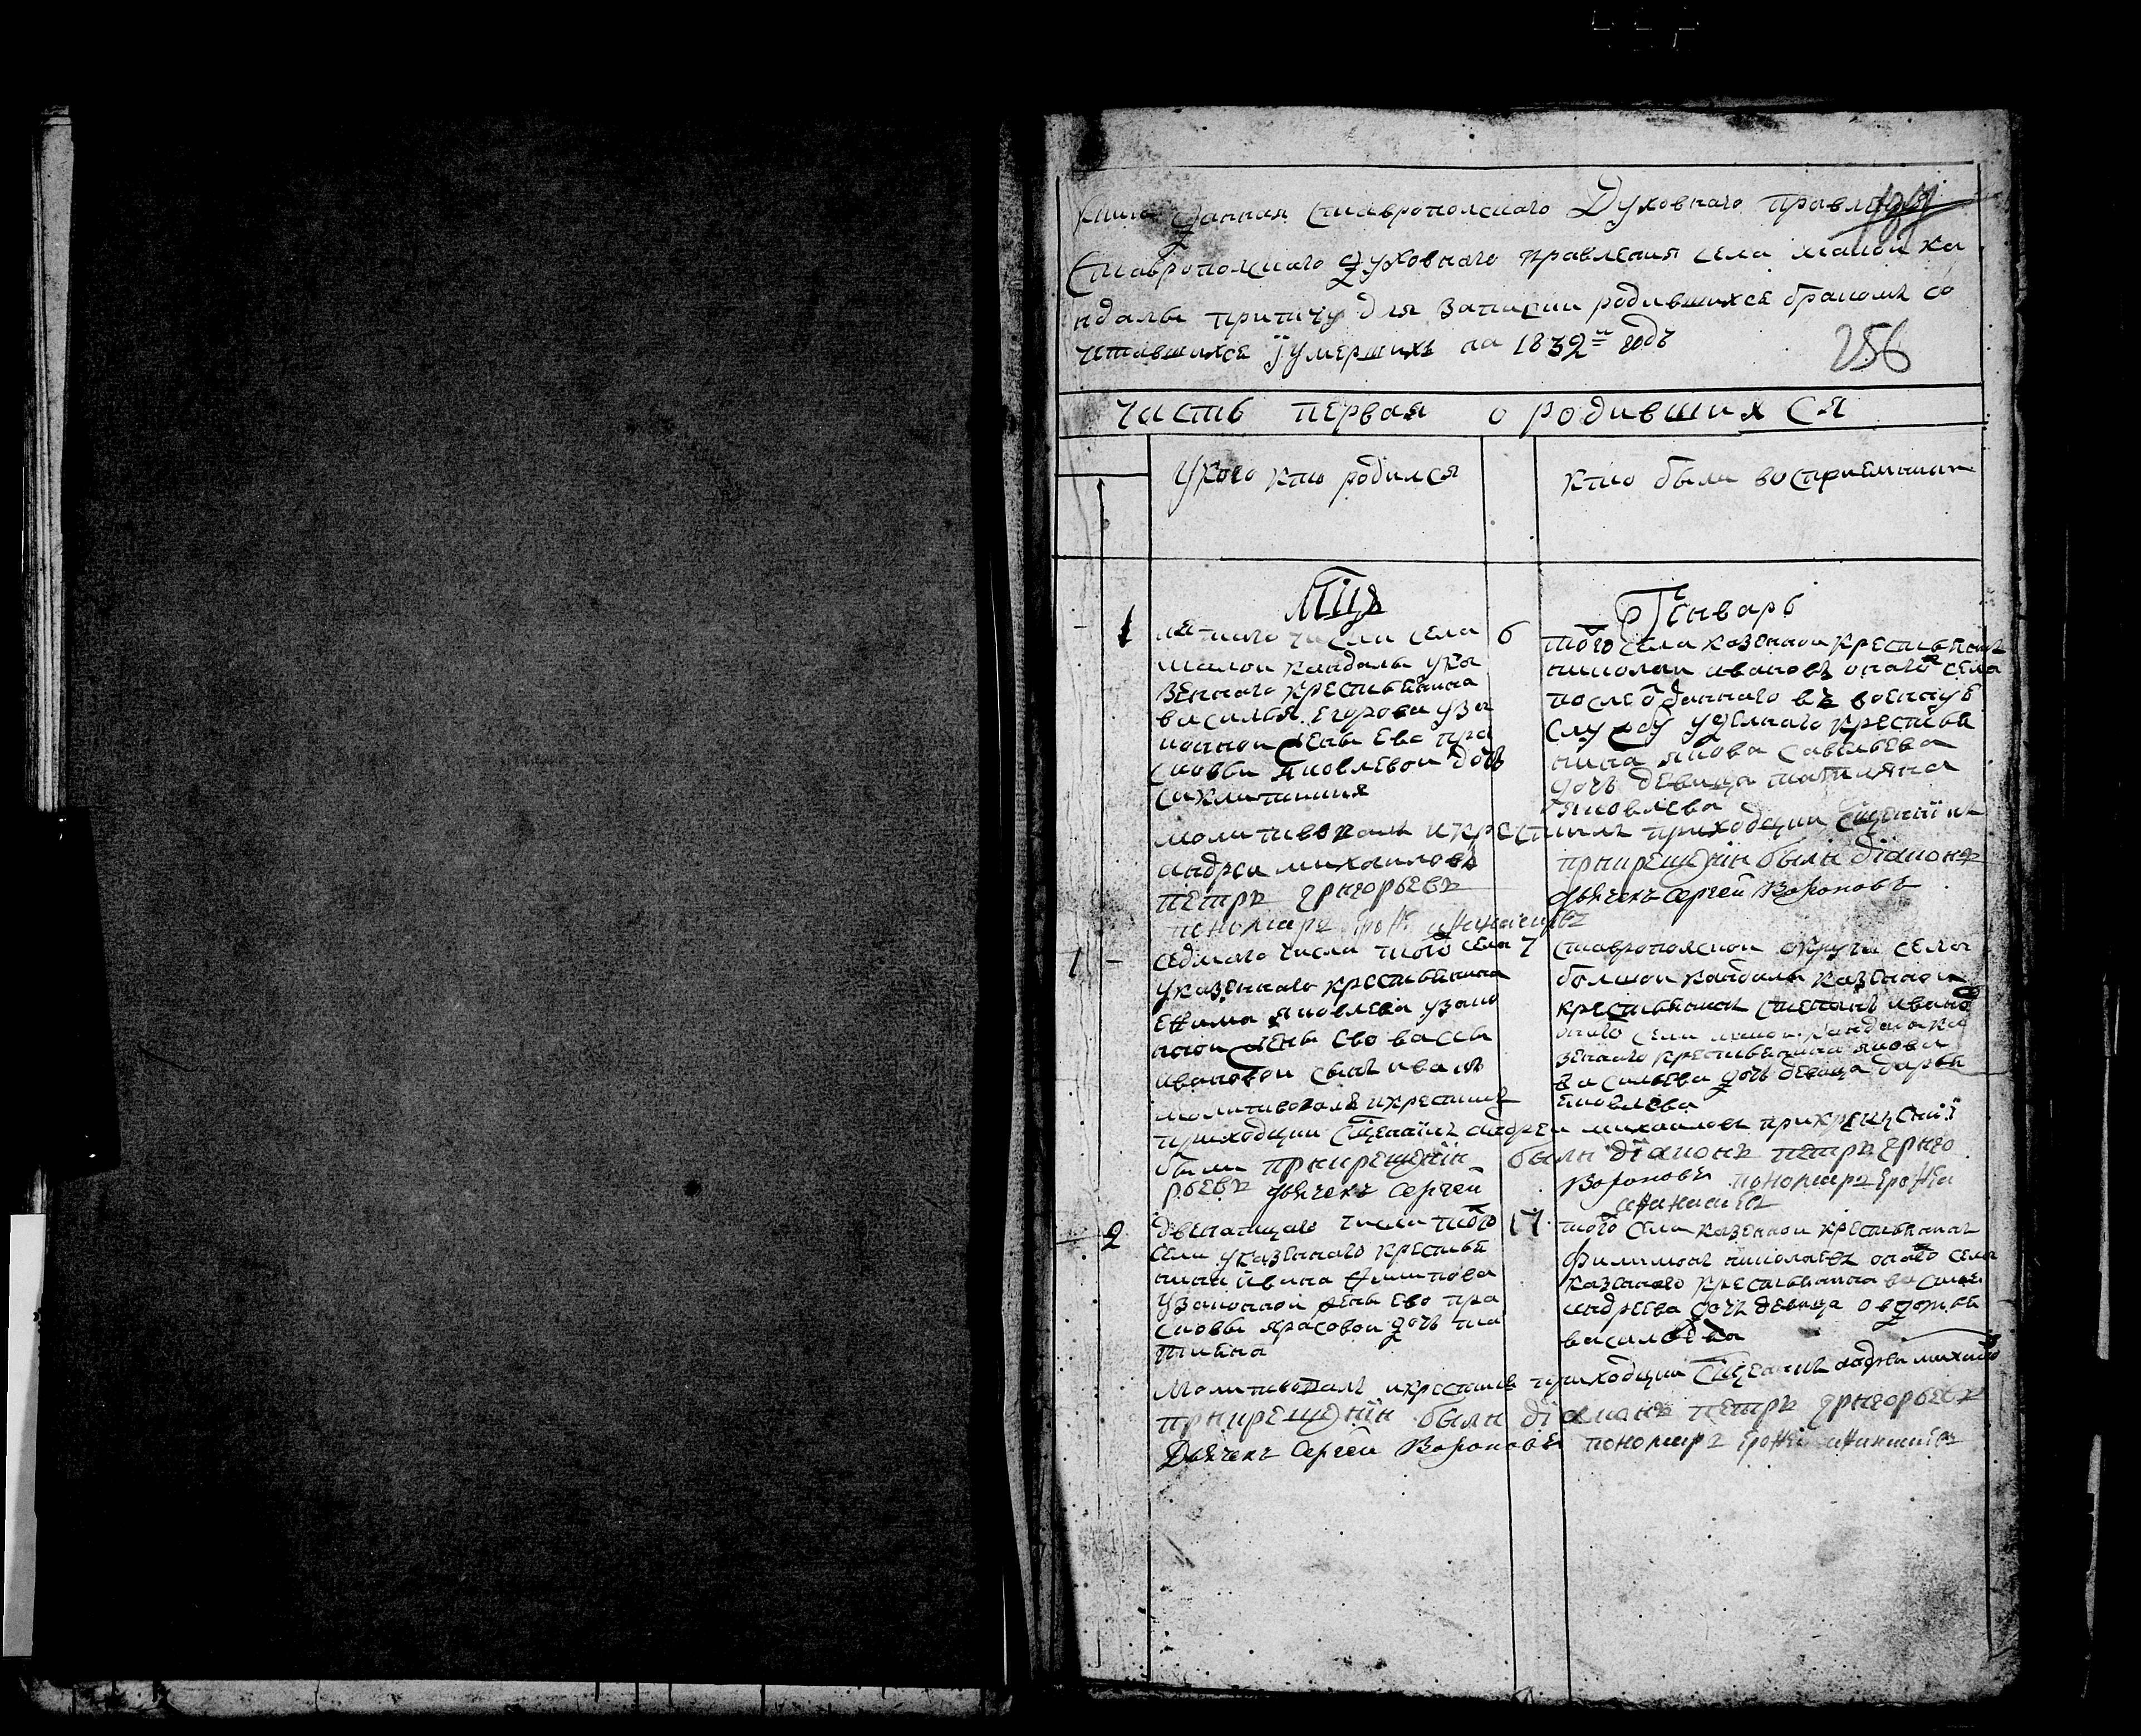 Книга данная Ставропольскаго Духовнаго правле
Ставропольскаго духовнаго правления села малой ка
ндалы причту для записки родившихся браком со
четавшихся ї умерших на 1832й годъ
256
часть первая о родившихся
у кого кто родился
кто были восприемники
Мцъ
Генварь
1
числа села
малой кандалы у ка
зеннаго крестьянина
василья егорова у за
конной жены ево пра
сковьи яковлевой дочь
6
того села казенной крестьянинъ
николай ивановъ онаго села
после отданнаго въ военную
службу уделнаго крестья
нина якова савельева
дочь девица татияна
яковлева
молитвовалъ и крестилъ приходцки сщенникъ
андреи михаиловъ
петръ григорьевъ
пономаръ
при крещении были дiаконъ
дьячекъ Сергей Вороновъ
1
седмаго числа того села
у казеннаго крестьянина
ефима яковлева у зако
нной жены ево вассы
ивановой сынъ иванъ
7
ставропольской округи села
большой кандалы казенной
крестьянинъ степанъ ивановъ
онаго села малой кандалы ка
зеннаго крестьянина якова
васильева дочь девица дарья
яковлева
молитвовалъ и крестилъ
приходцки сщенникъ андреи михаиловъ при крещении
были при крещении были дiаконъ петръ григо
рьевъ дьячекъ Сергей Вороновъ пономаръ
2
числа того
села у казеннаго крестья
нина ивана филипова
у законной жены ево пра
сковьи
дочь та
тияна
17
того села казенной крестьянинъ
филимонъ николаевъ онаго села
казеннаго крестьянина
андреева дочь девица овдотья
васильева
молитвовалъ и крестилъ приходцки сщенникъ андреи михаило
при крещении были дiаконъ петръ григорьевъ
Дьячекъ Сергей Вороновъ пономаръ